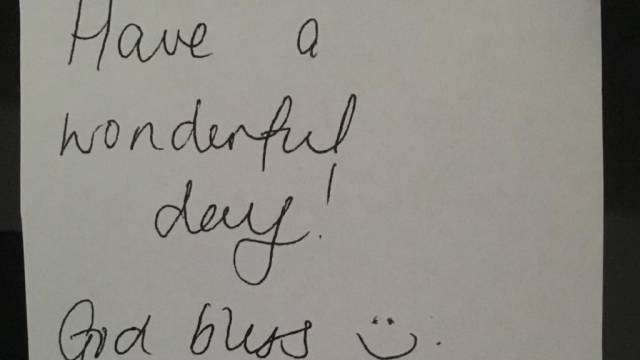 Have a
wonderful
day!
God bless :).